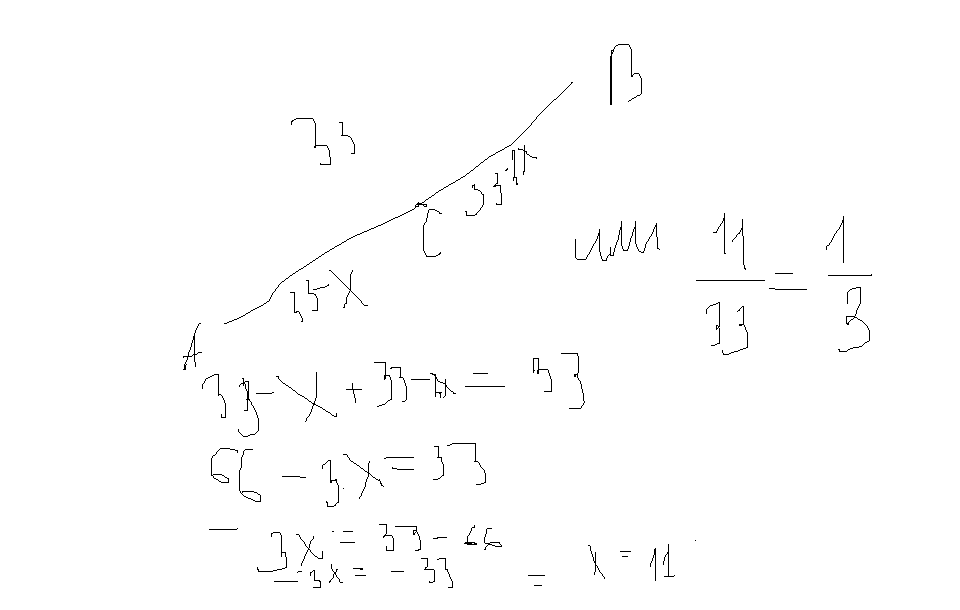 B
33
33-2x
C
11/33 = 1/3
33-x
A
33-x+33-2x=33
66-3x=33
-3x=33-66
-3x=-33 = x=11